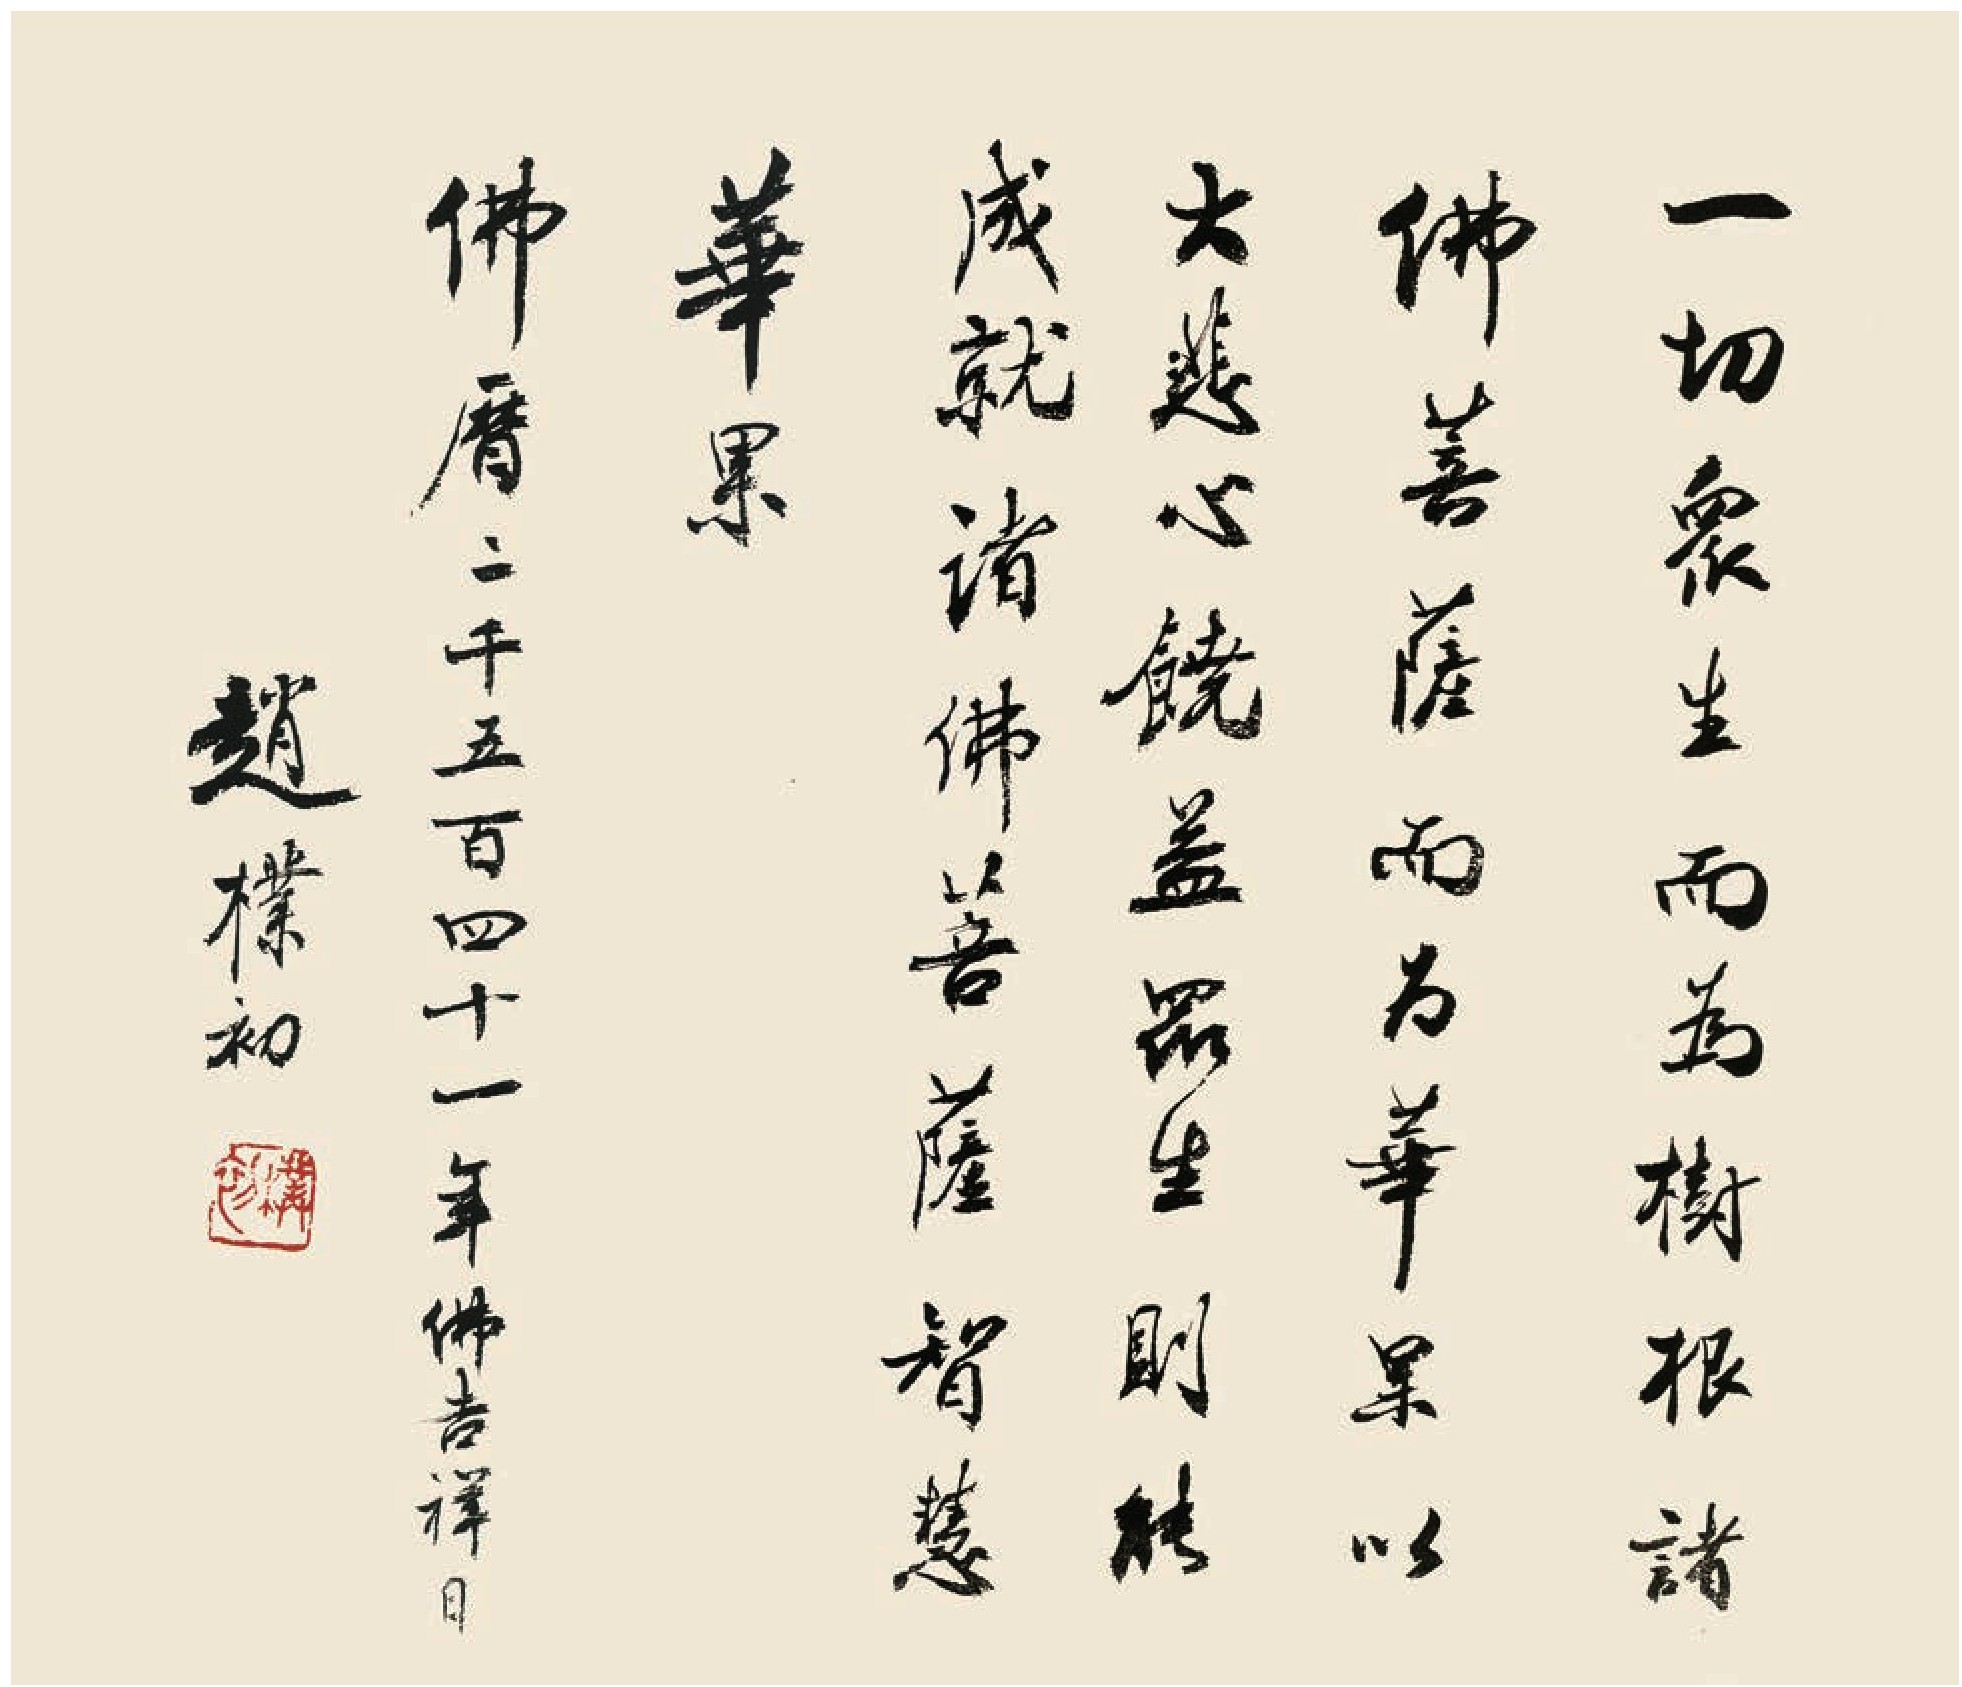 一切眾生而為樹根諸
佛菩薩而为華果以
大悲心饒益眾生則能
成就诸佛菩薩智慧
華果
佛曆二千五百四十一年佛吉祥日
趙樸初
樸初